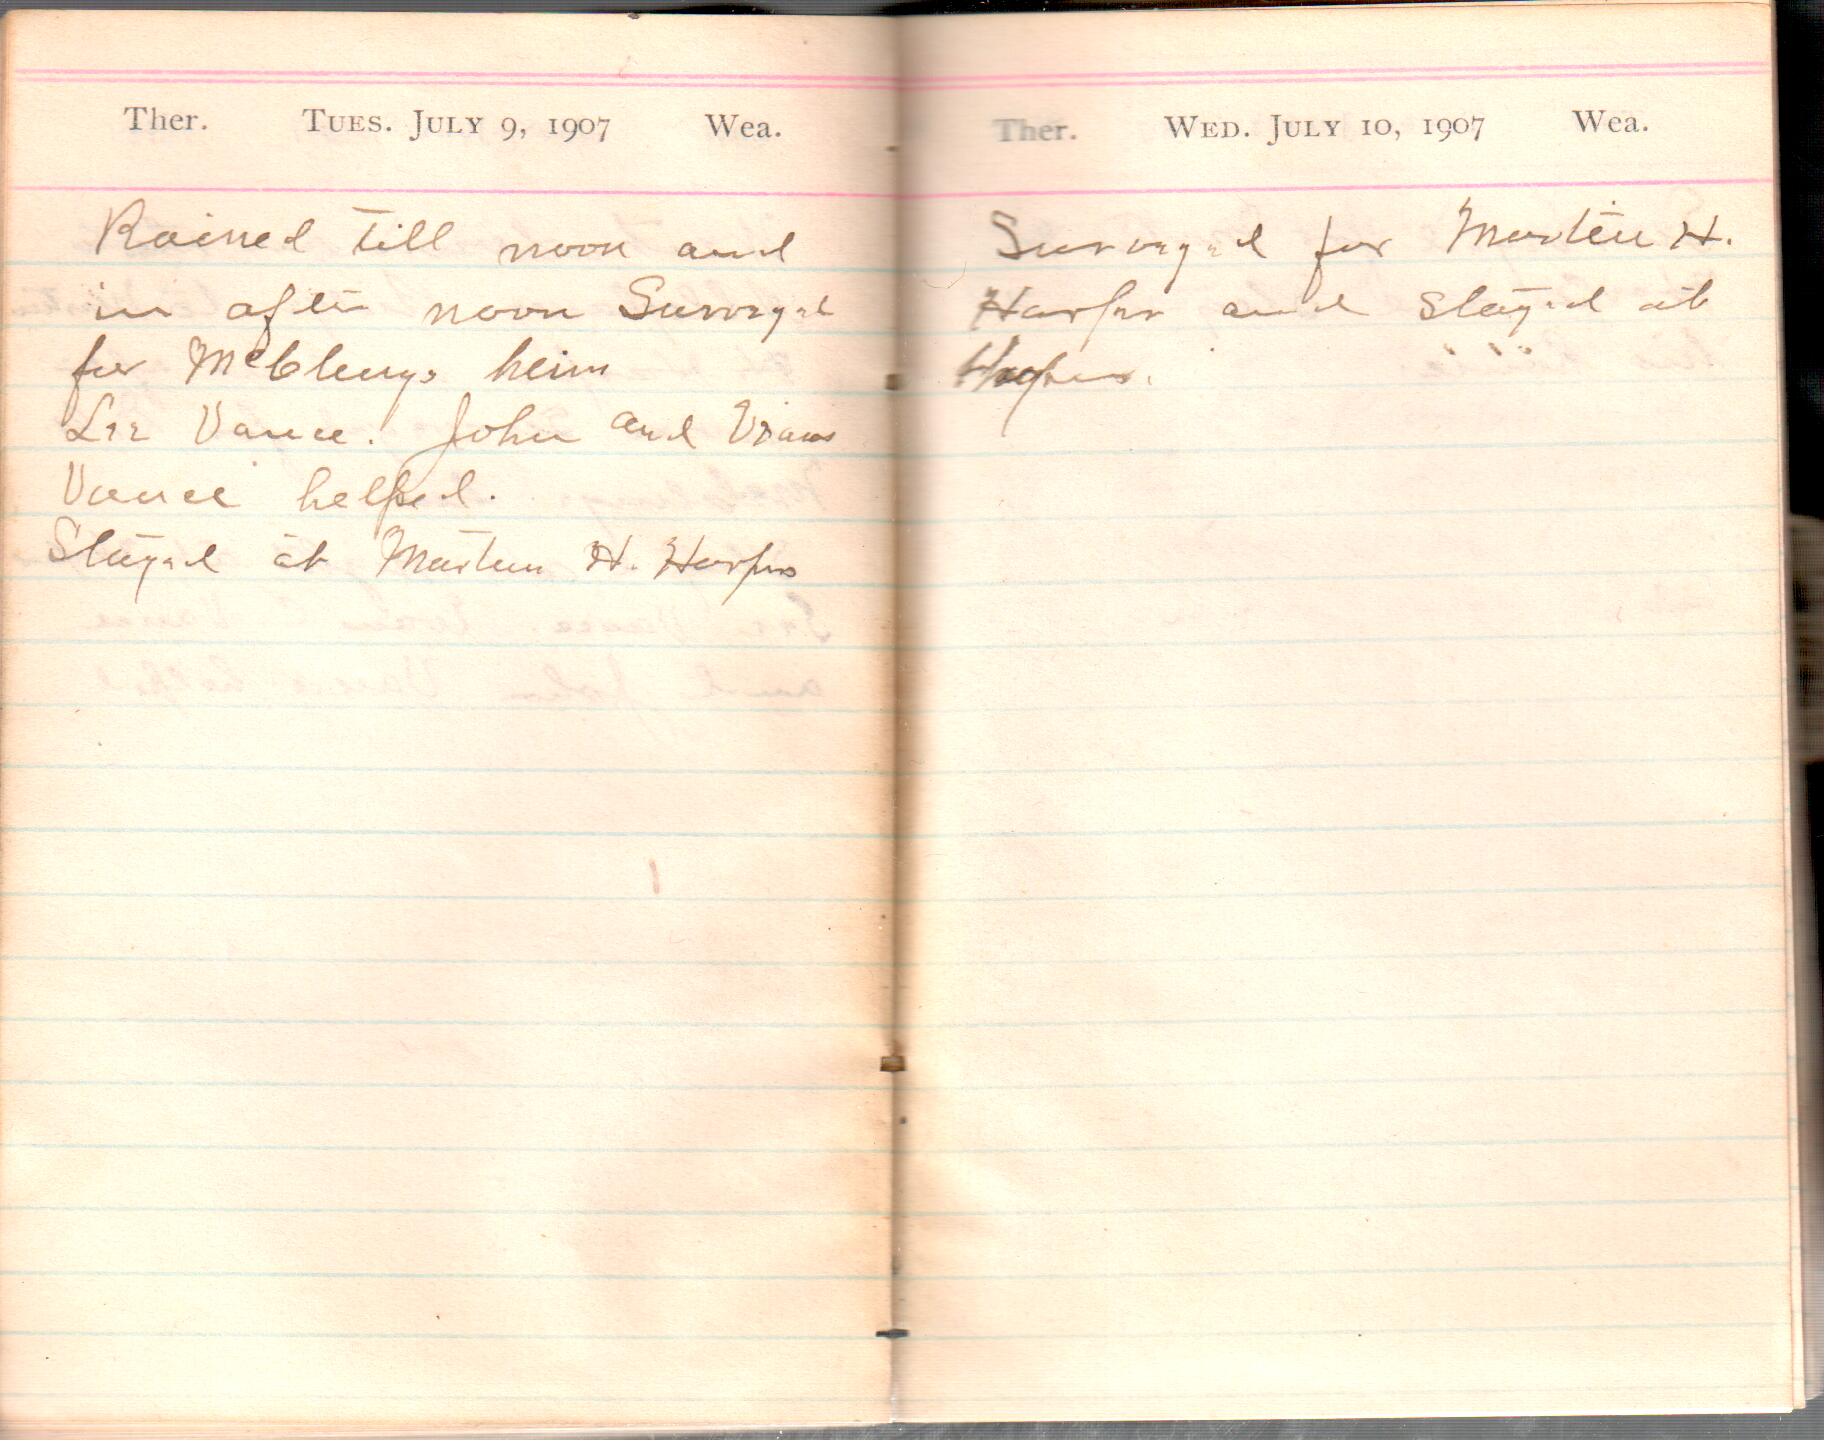 Ther. TUES. JULY 9, 1907 Wea.
Rained till noon and
in after noon Surveyed
for McClungs heirs
Lee Vance. John and
Vance helped.
Stayed at Martin H. Harpers
Ther. WED. JULY 10, 1907 Wea.
Surveyed for Martin H.
Harper and stayed at
Harpers.